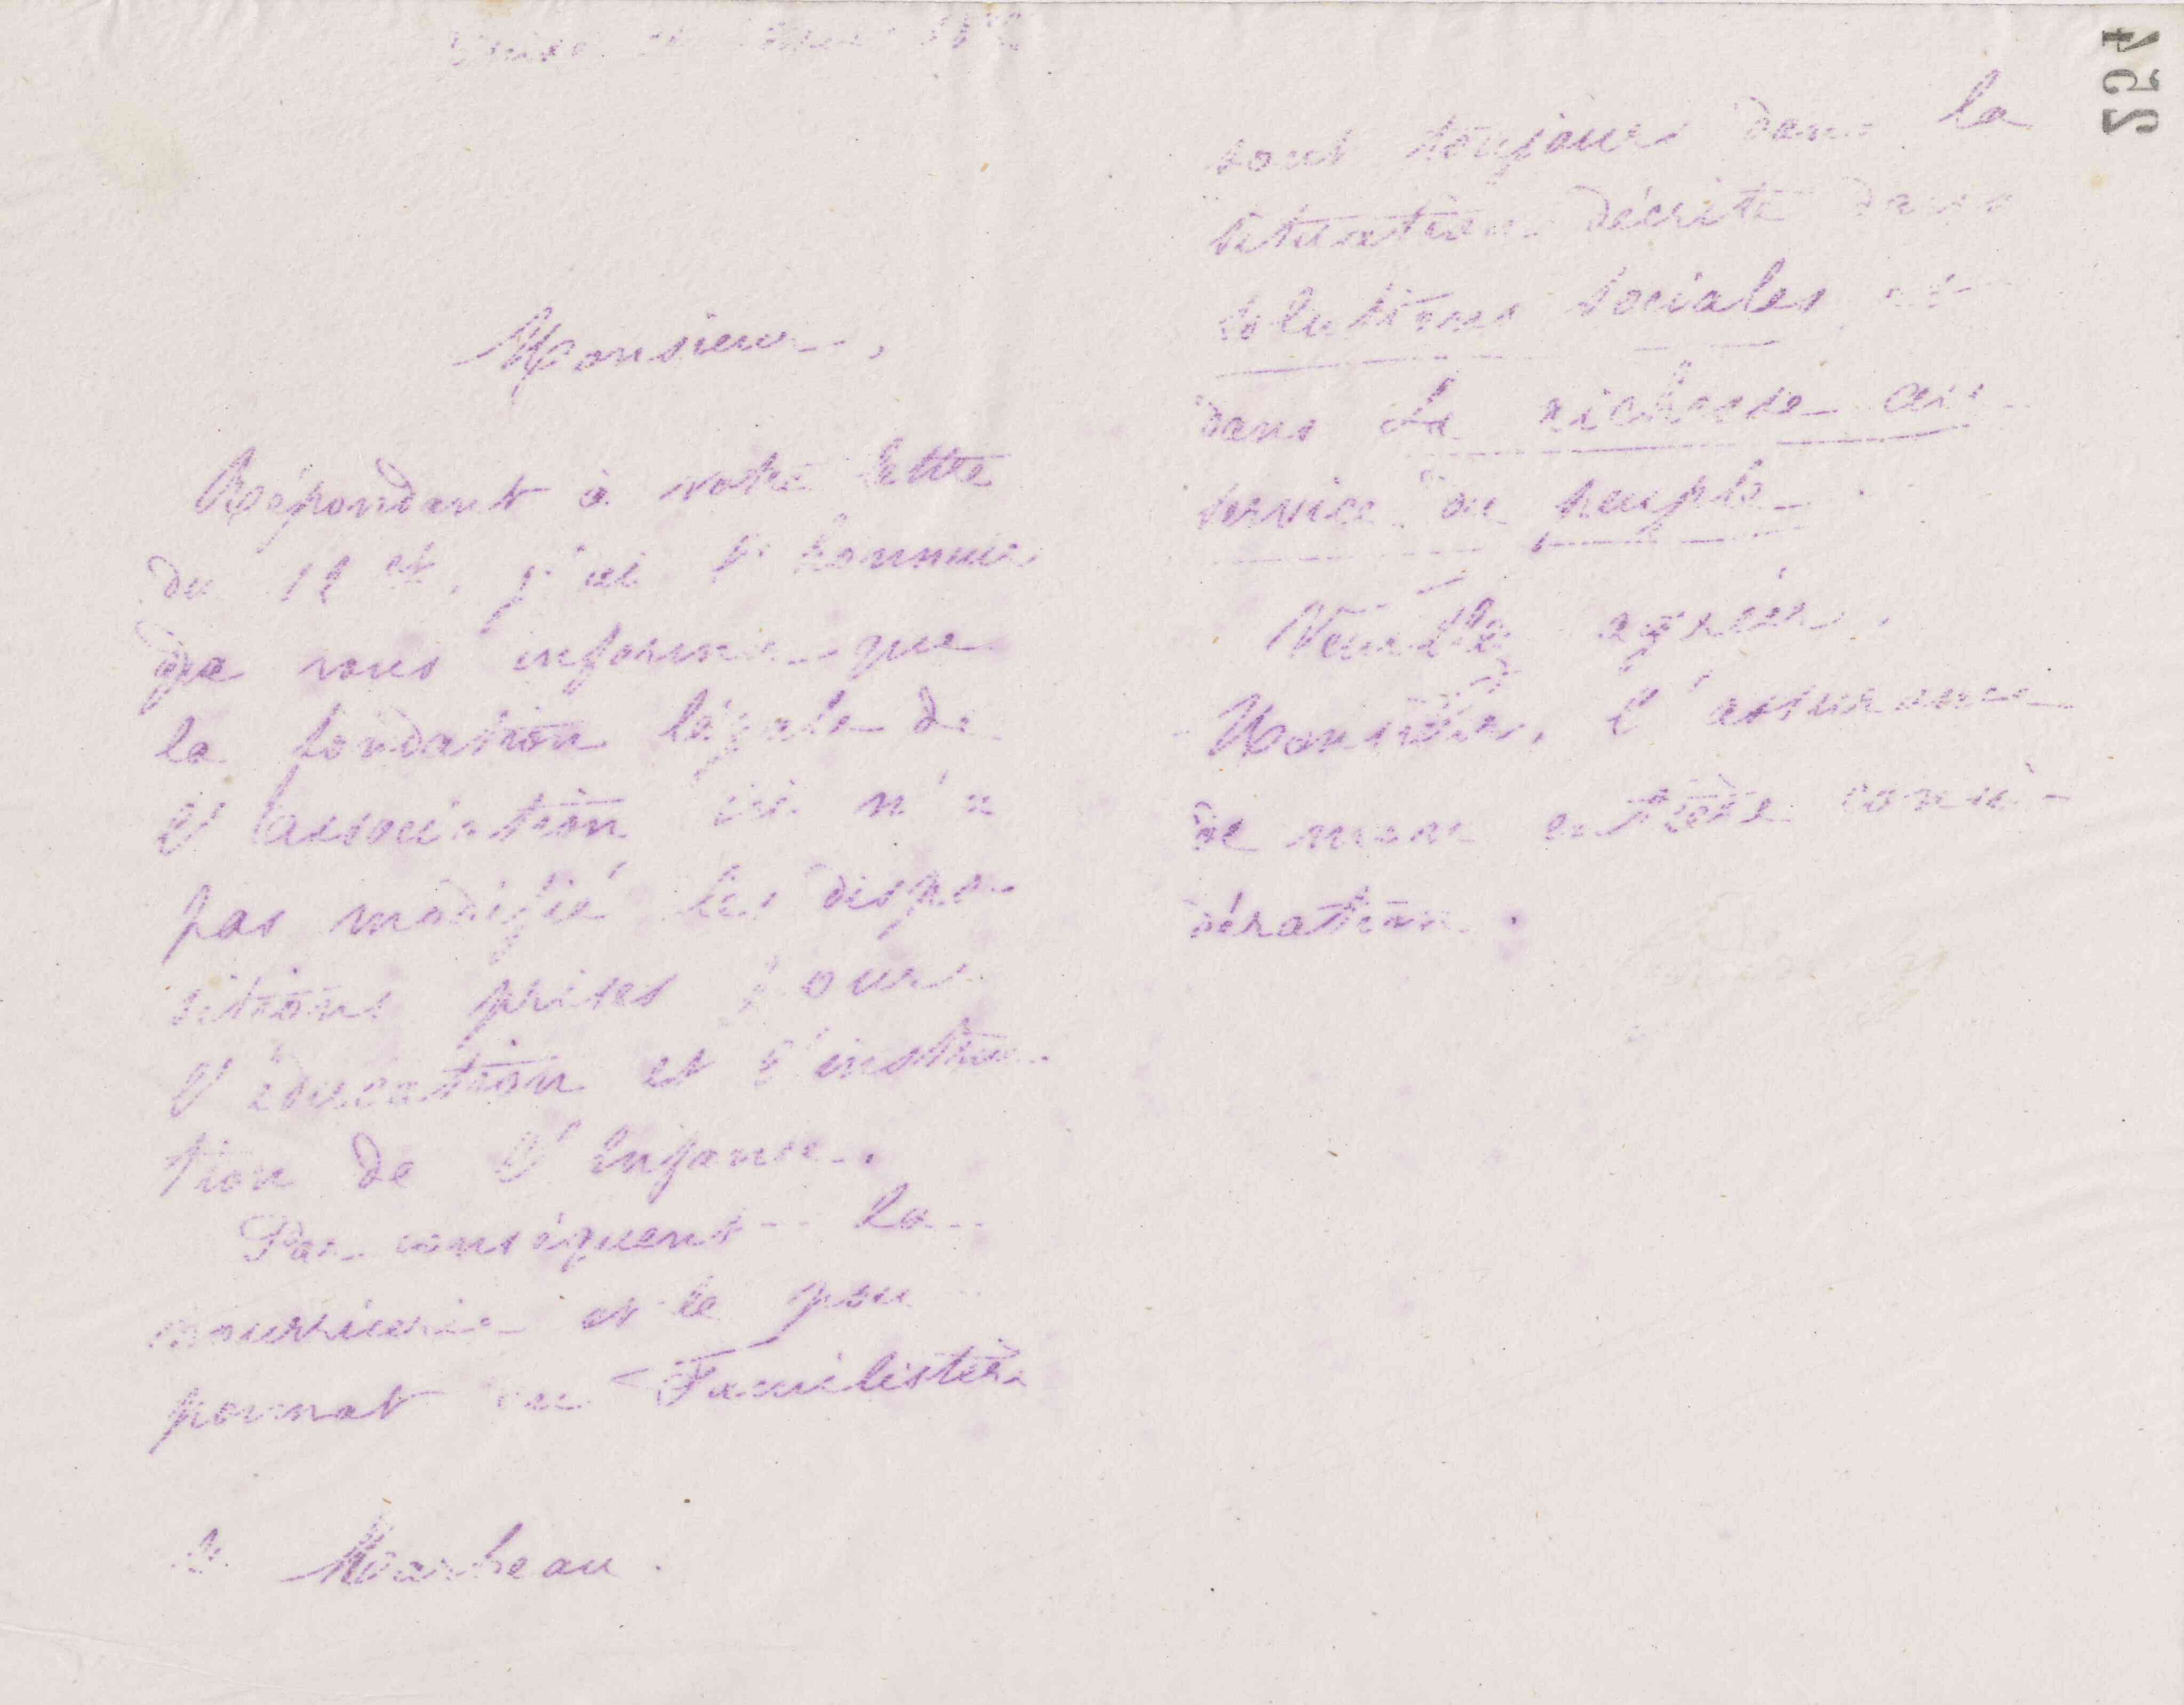 Guise
Monsieur,
Répondant à votre lettre
du 12 ct, j'ai l'honneur
de vous informer que
la fondation légale de
l'association ici n'a
pas modifié les dispo-
sitions prises pour
l'éducation et l'instruc-
tion de l'enfance.
Par conséquent la
nourricerie et le pou
ponnat au Familistère
Marbeau.
254
sont toujours dans la
situation décrite dans
solutions sociales et
dans La richesse au
service du peuple.
Veuillez agréer,
Monsieur, l'assurance
de mon entière consi-
dération.